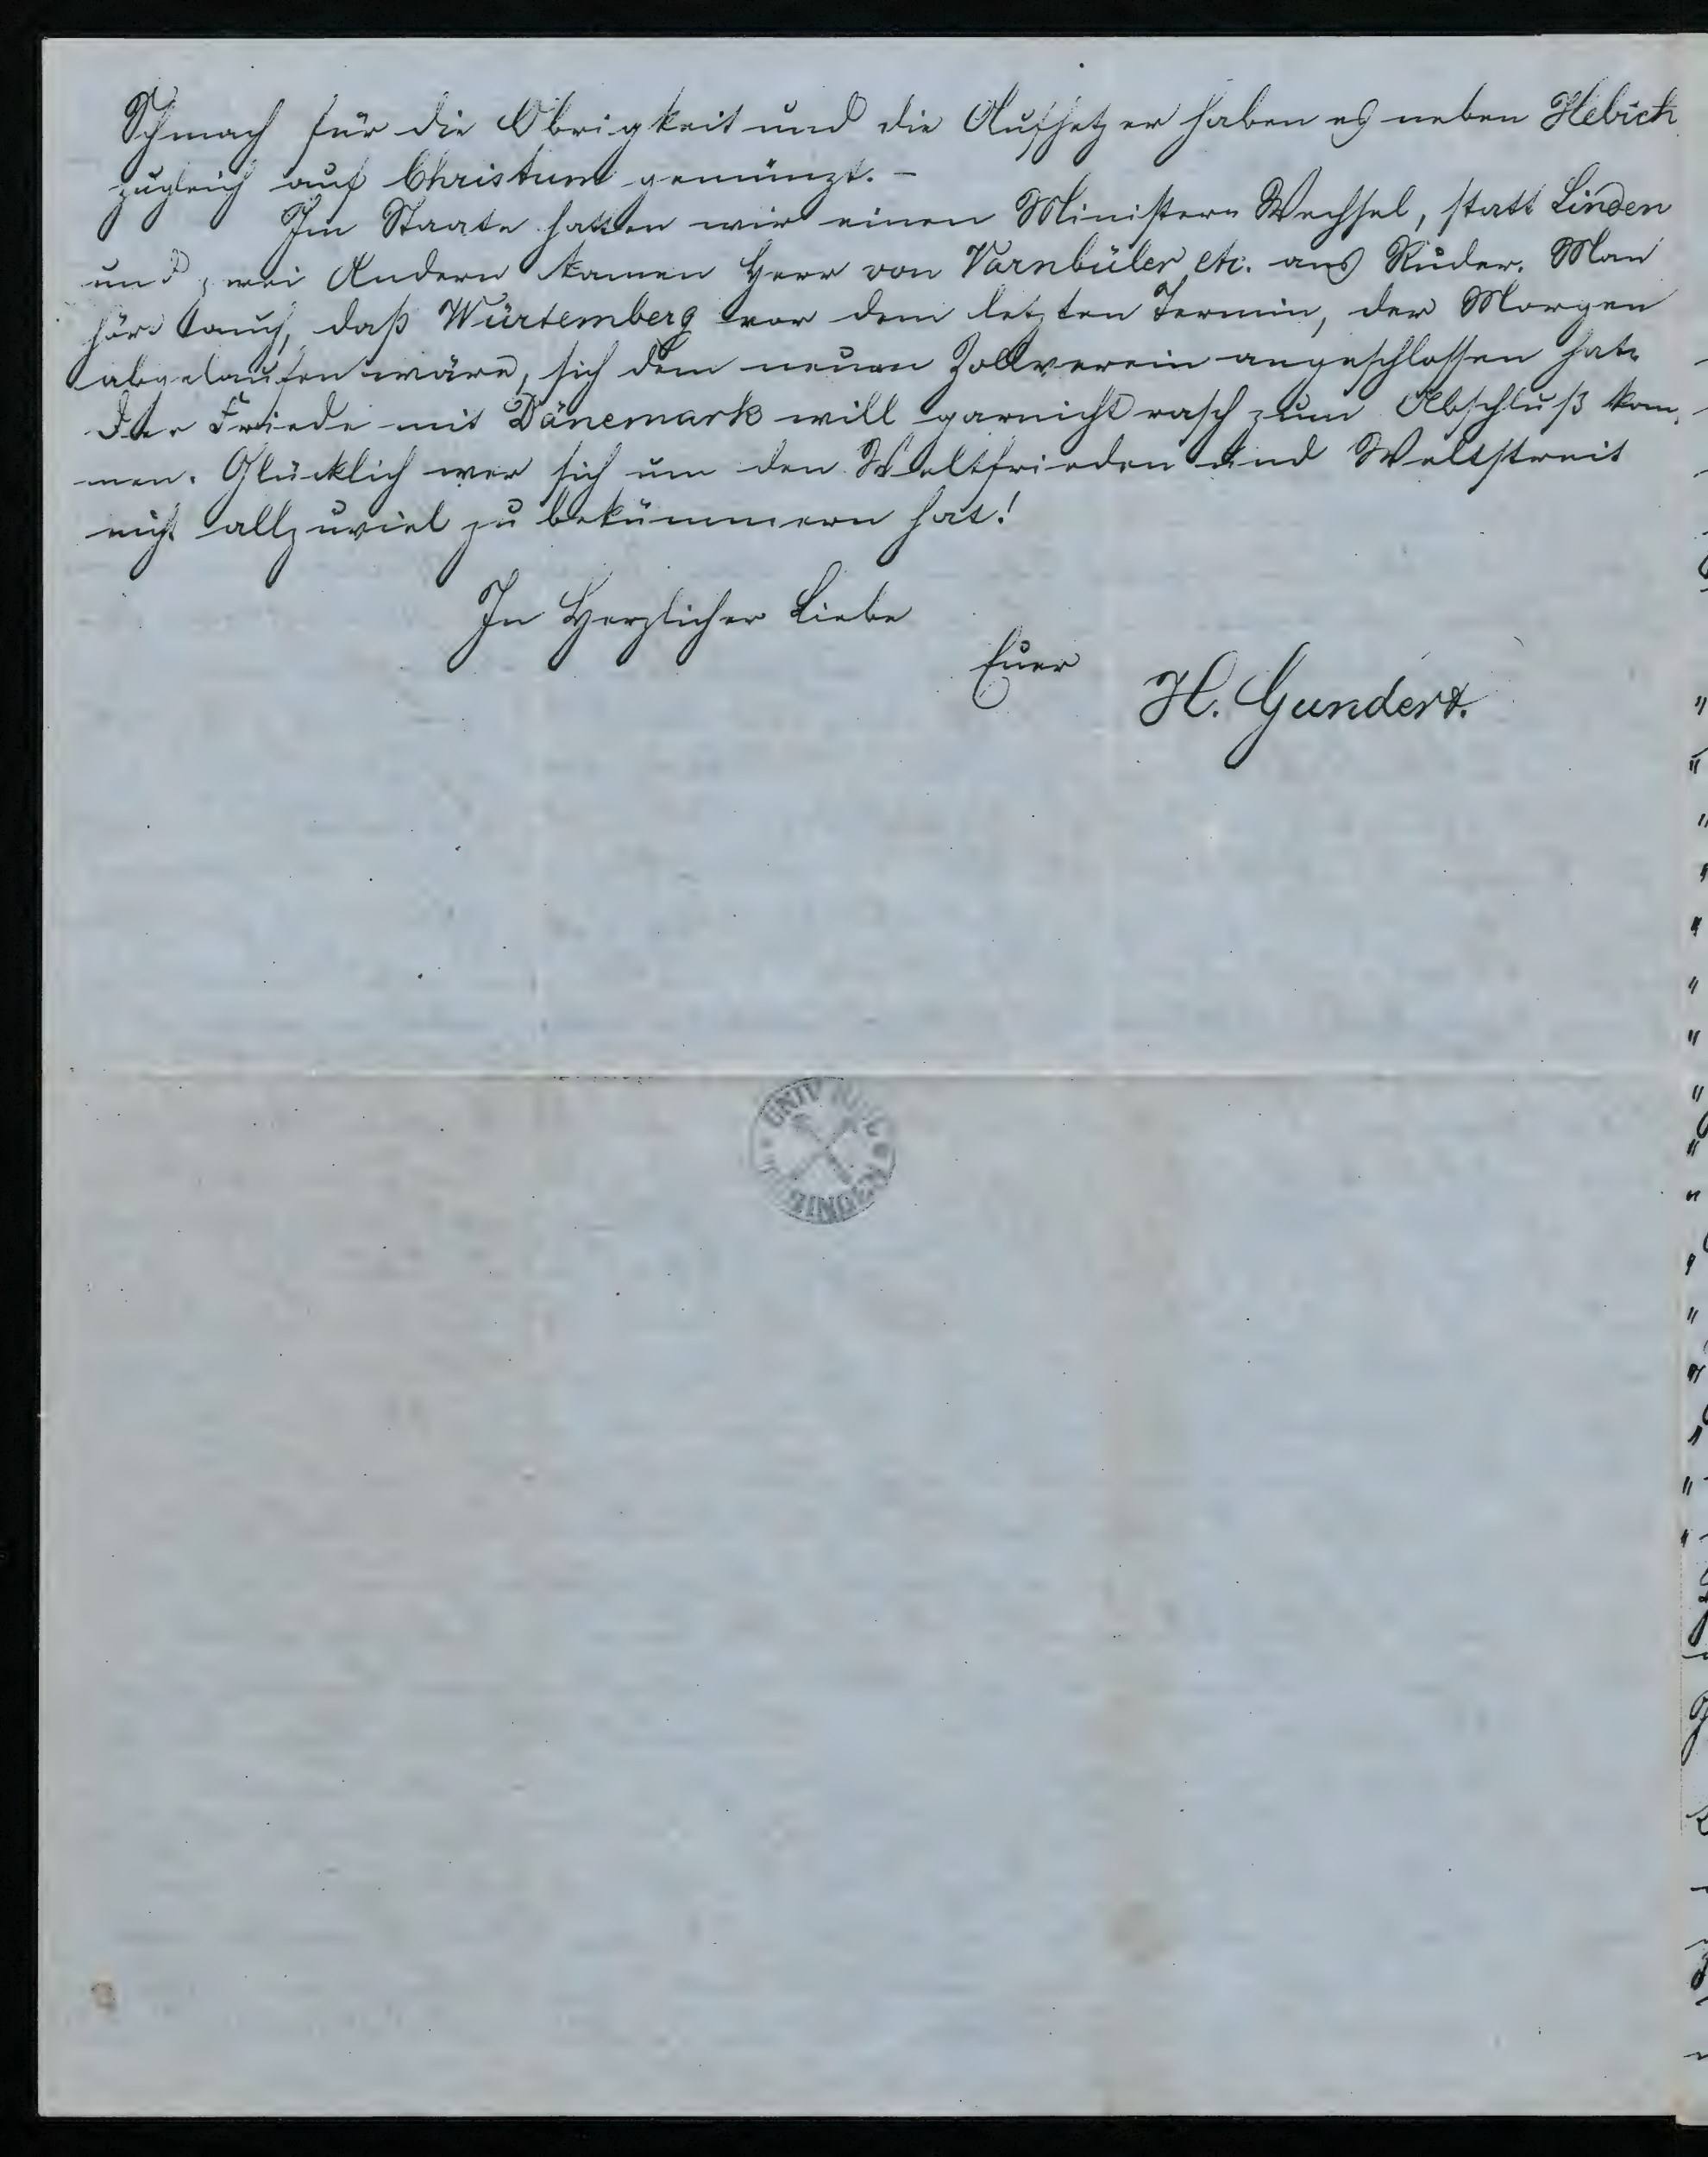 Schmach für die Obrigkeit und die Aufhetzer haben es neben Hebich
zugleich auf Christum gemünzt. –
Im Staate hatten wir einen Ministern Wechsel, statt Linden
und zwei Andern kamen Herr von Varnbüler etc. ans Ruder. Man
hört auch, daß Würtemberg vor dem letzten Termin, der Morgen
abgelaufen wäre, sich dem neuen Zollverein angeschlossen hat.
Der Friede mit Dänemark will gar nicht rasch zum Abschluß kom-
men. Glücklich wer sich um den Weltfrieden und Weltstreit
nicht allzuviel zu bekümmern hat!
In Herzlicher Liebe
Euer
H. Gundert.
UNIV